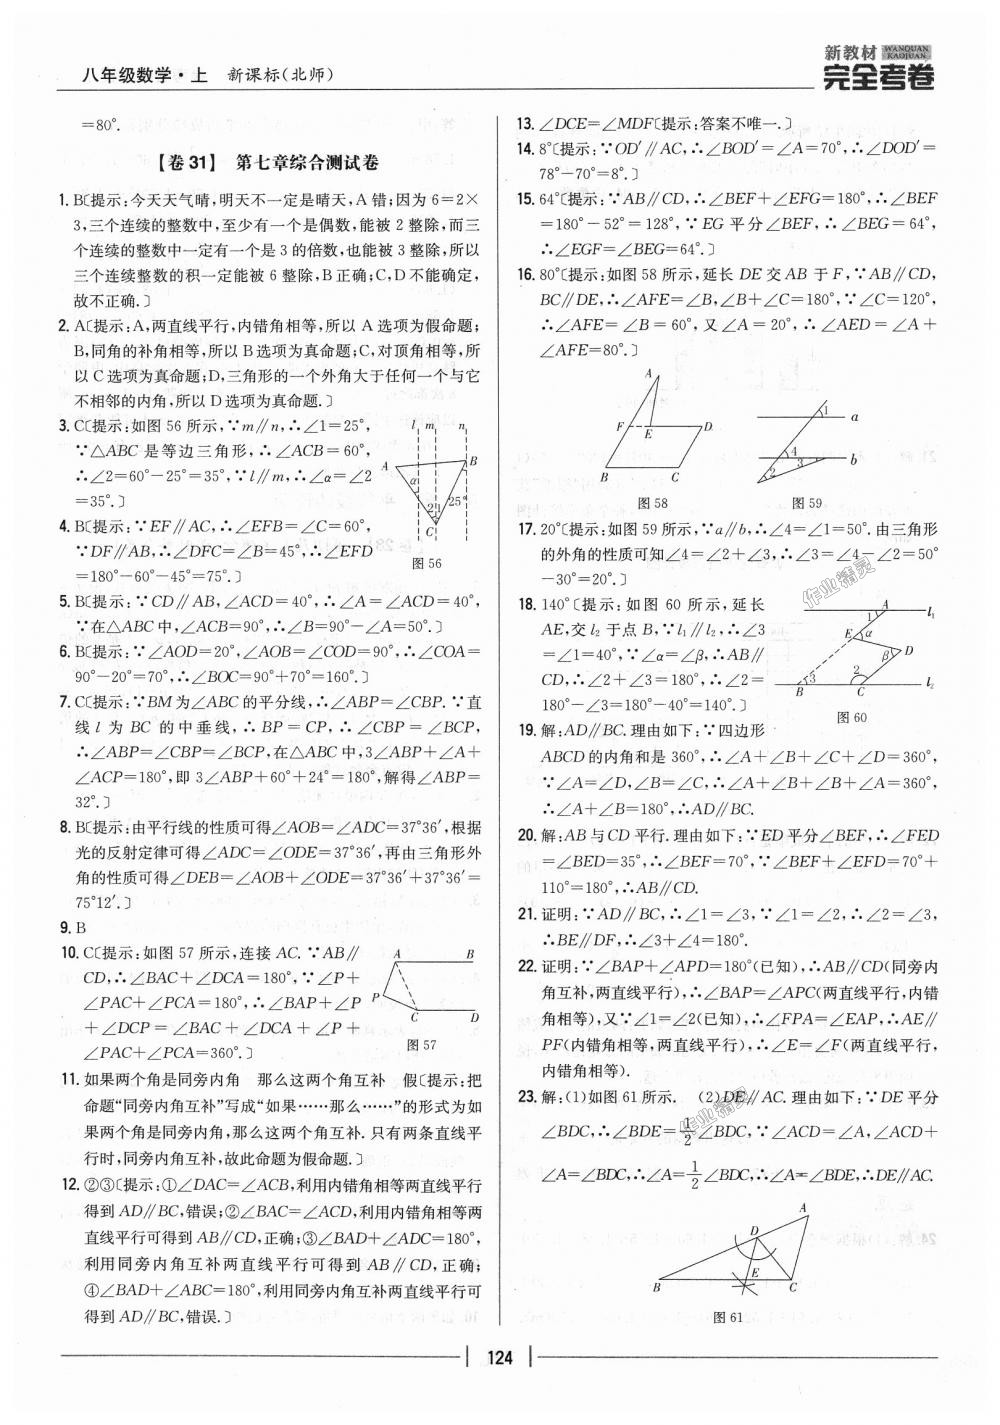 八年级数学·上 新课标(北师)
新教材 WANQUAN KAOJUAN
完全考卷
=80°.
【卷 31】 第七章综合测试卷
1. B〔提示:今天天气晴,明天不一定是晴天,A 错;因为 6=2×
3,三个连续的整数中,至少有一个是偶数,能被 2 整除,而三
个连续的整数中一定有一个是 3 的倍数,也能被 3 整除,所以
三个连续整数的积一定能被 6 整除,B 正确;C,D 不能确定,
故不正确.〕
2. A〔提示:A,两直线平行,内错角相等,所以 A 选项为假命题;
B,同角的补角相等,所以 B 选项为真命题;C,对顶角相等,所
以 C 选项为真命题;D,三角形的一个外角大于任何一个与它
不相邻的内角,所以 D 选项为真命题.〕
3. C〔提示:如图 56 所示,∵m∥n,∴∠1=25°,
∵△ABC 是等边三角形,∴∠ACB=60°,
∴∠2=60°-25°=35°,∵l∥m,∴∠α=∠2
=35°.〕
l m n
A B
α 21 25°
C
图 56
4. B〔提示:∵EF∥AC,∴∠EFB=∠C=60°,
∵DF∥AB,∴∠DFC=∠B=45°,∴∠EFD
=180°-60°-45°=75°.〕
5. B〔提示:∵CD∥AB,∠ACD=40°,∴∠A=∠ACD=40°,
∵在△ABC 中,∠ACB=90°,∴∠B=90°-∠A=50°.〕
6. B〔提示:∵∠AOD=20°,∠AOB=∠COD=90°,∴∠COA=
90°-20°=70°,∴∠BOC=90°+70°=160°.〕
7. C〔提示:∵BM 为∠ABC 的平分线,∴∠ABP=∠CBP.∵直
线 l 为 BC 的中垂线,∴BP=CP,∴∠CBP=∠BCP,
∴∠ABP=∠CBP=∠BCP,在△ABC 中,3∠ABP+∠A+
∠ACP=180°,即 3∠ABP+60°+24°=180°,解得∠ABP=
32°.〕
8. B〔提示:由平行线的性质可得∠AOB=∠ADC=37°36′,根据
光的反射定律可得∠ADC=∠ODE=37°36′,再由三角形外
角的性质可得∠DEB=∠AOB+∠ODE=37°36′+37°36′=
75°12′.〕
9. B
10. C〔提示:如图 57 所示,连接 AC.∵AB∥
CD,∴∠BAC+∠DCA=180°,∵∠P+
∠PAC+∠PCA=180°,∴∠BAP+∠P
+∠DCP=∠BAC+∠DCA+∠P+
∠PAC+∠PCA=360°.〕
A B
P
C D
图 57
11. 如果两个角是同旁内角 那么这两个角互补 假〔提示:把
命题“同旁内角互补”写成“如果……那么……”的形式为如
果两个角是同旁内角,那么这两个角互补.只有两条直线平
行时,同旁内角互补,故此命题为假命题.〕
12. ②③〔提示:①∠DAC=∠ACB,利用内错角相等两直线平行
得到 AD∥BC,错误;②∠BAC=∠ACD,利用内错角相等两
直线平行可得到 AB∥CD,正确;③∠BAD+∠ADC=180°,
利用同旁内角互补两直线平行可得到 AB∥CD,正确;
④∠BAD+∠ABC=180°,利用同旁内角互补两直线平行可
得到 AD∥BC,错误.〕
13. ∠DCE=∠MDF〔提示:答案不唯一.〕
14. 8°〔提示:∵OD′∥AC,∴∠BOD′=∠A=70°,∴∠DOD′=
78°-70°=8°.〕
15. 64°〔提示:∵AB∥CD,∴∠BEF+∠EFG=180°,∴∠BEF
=180°-52°=128°,∵EG 平分∠BEF,∴∠BEG=64°,
∴∠EGF=∠BEG=64°.〕
16. 80°〔提示:如图 58 所示,延长 DE 交 AB 于 F,∵AB∥CD,
BC∥DE,∴∠AFE=∠B,∠B+∠C=180°,∵∠C=120°,
∴∠AFE=∠B=60°,又∠A=20°,∴∠AED=∠A+
∠AFE=80°.〕
A
F E D
B C
图 58
1 a
4
3 b
2
图 59
17. 20°〔提示:如图 59 所示,∵a∥b,∴∠4=∠1=50°.由三角形
的外角的性质可知∠4=∠2+∠3,∴∠3=∠4-∠2=50°
-30°=20°.〕
作业精灵
18. 140°〔提示:如图 60 所示,延长
AE,交 l₂ 于点 B,∵l₁∥l₂,∴∠3
=∠1=40°,∵∠α=∠β,∴AB∥
CD,∴∠2+∠3=180°,∴∠2=
180°-∠3=180°-40°=140°.〕
1 A l₁
E α
β D
3 2
B C l₂
图 60
19. 解:AD∥BC.理由如下:∵四边形
ABCD 的内角和是 360°,∴∠A+∠B+∠C+∠D=360°,
∵∠A=∠D,∠B=∠C,∴∠A+∠B+∠B+∠A=360°,
∴∠A+∠B=180°,∴AD∥BC.
20. 解:AB 与 CD 平行.理由如下:∵ED 平分∠BEF,∴∠FED
=∠BED=35°,∴∠BEF=70°,∵∠BEF+∠EFD=70°+
110°=180°,∴AB∥CD.
21. 证明:∵AD∥BC,∴∠1=∠3,∵∠1=∠2,∴∠2=∠3,
∴BE∥DF,∴∠3+∠4=180°.
22. 证明:∵∠BAP+∠APD=180°(已知),∴AB∥CD(同旁内
角互补,两直线平行),∴∠BAP=∠APC(两直线平行,内错
角相等),又∵∠1=∠2(已知),∴∠FPA=∠EAP,∴AE∥
PF(内错角相等,两直线平行),∴∠E=∠F(两直线平行,
内错角相等).
23. 解:(1)如图 61 所示. (2)DE∥AC.理由如下:∵DE 平分
作业精灵
∠BDC,∴∠BDE=1/2∠BDC,∵∠ACD=∠A,∠ACD+
∠A=∠BDC,∴∠A=1/2∠BDC,∴∠A=∠BDE,∴DE∥AC.
A
D
B E C
图 61
124